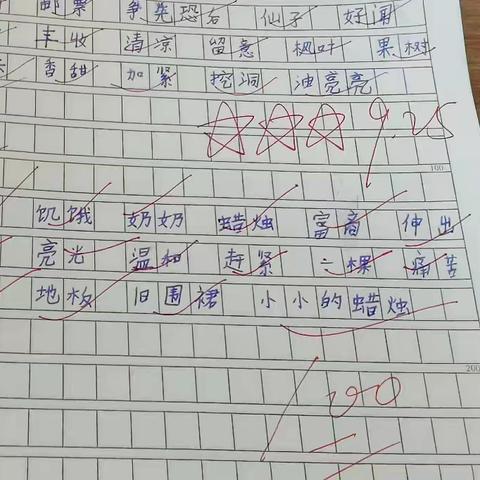 邮票 争先恐后 仙子 好闻
丰收 清凉 留意 枫叶 果树
香甜 加紧 挖洞 油亮亮
9.25
100
饥饿 奶奶 蜡烛 富商 伸出
亮光 温和 赶紧 一棵 痛苦
地板 旧围裙 小小的蜡烛
200
100